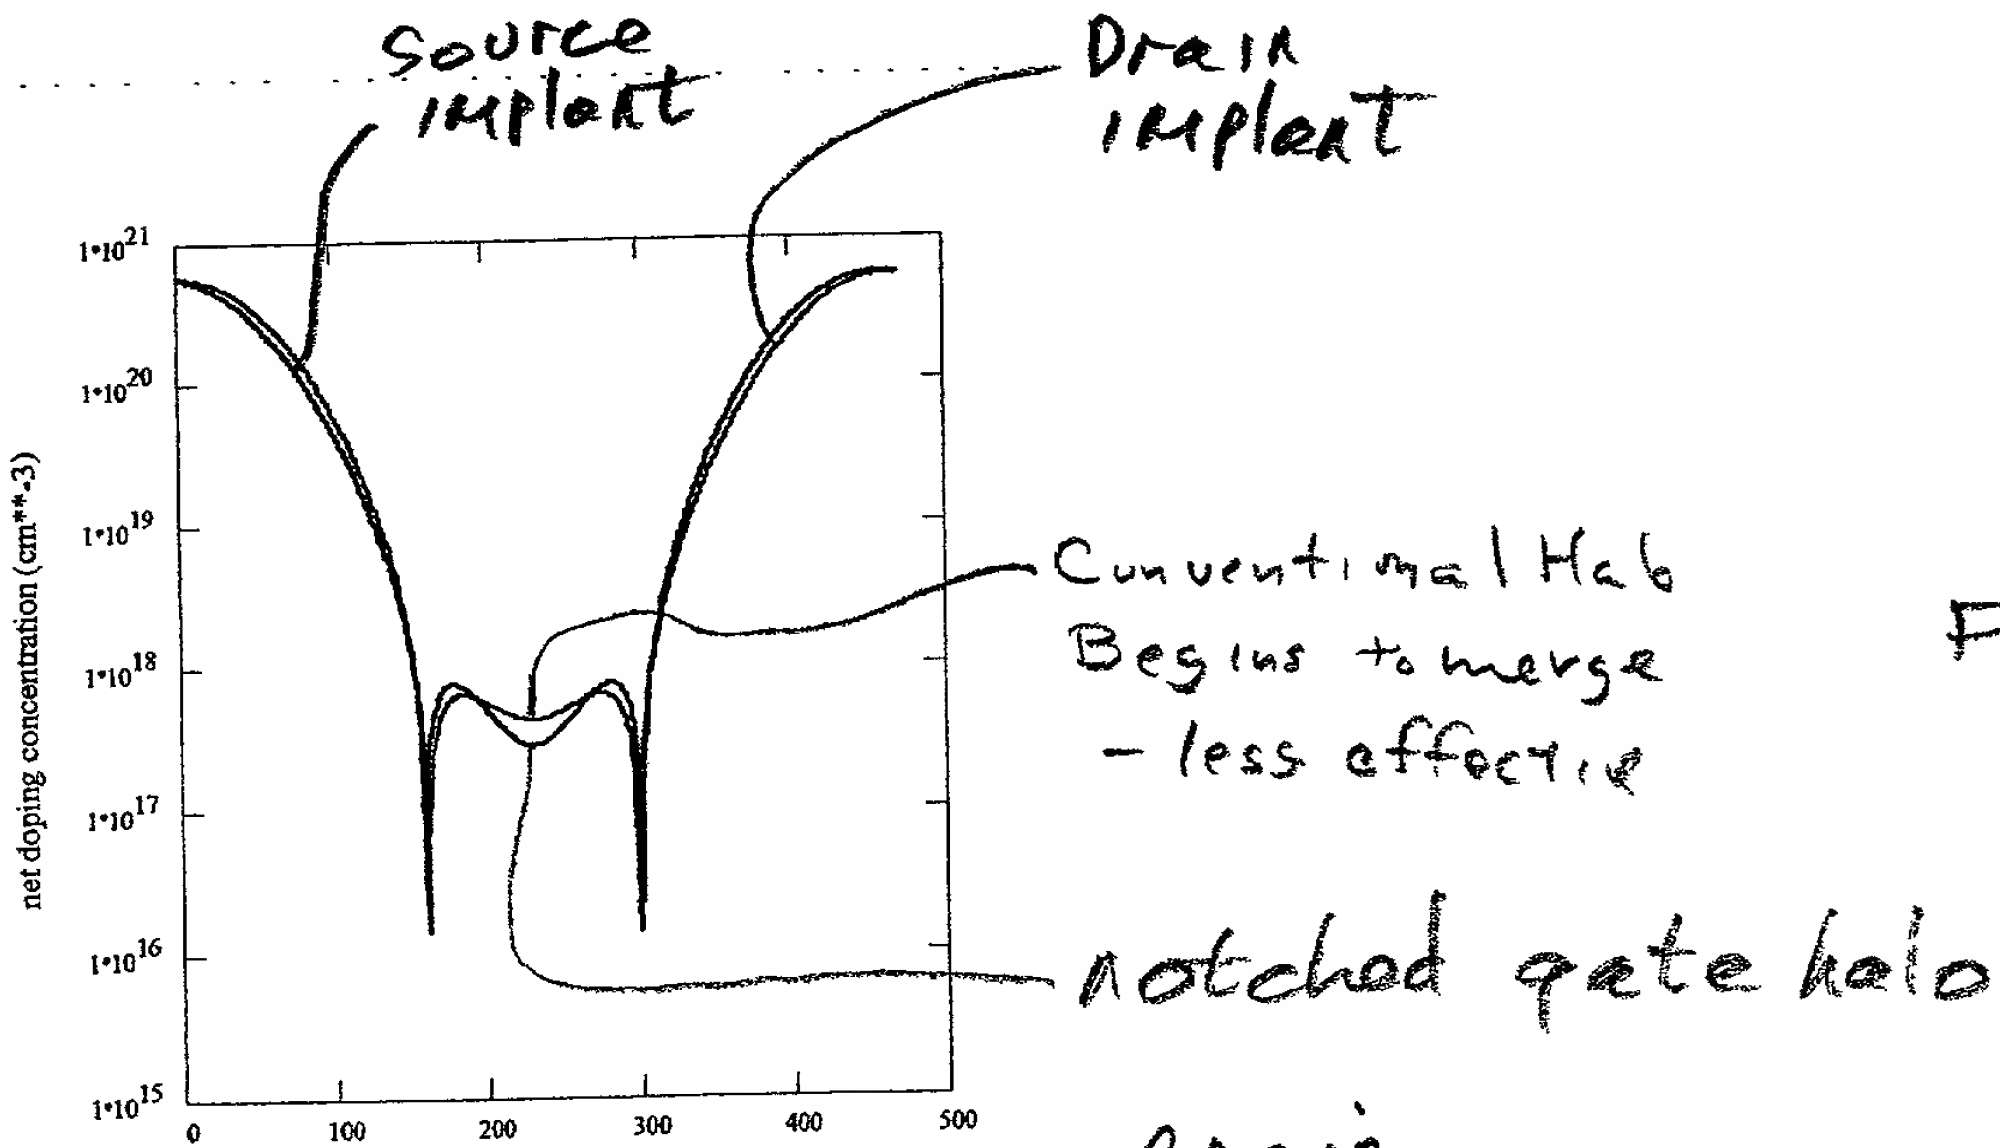 Source
implant
Drain
implant
1•10^21
1•10^20
1•10^19
1•10^18
1•10^17
1•10^16
1•10^15
net doping concentration (cm**-3)
0 100 200 300 400 500
Conventional Halo
Begins to merge
- less effective
notched gate halo
F